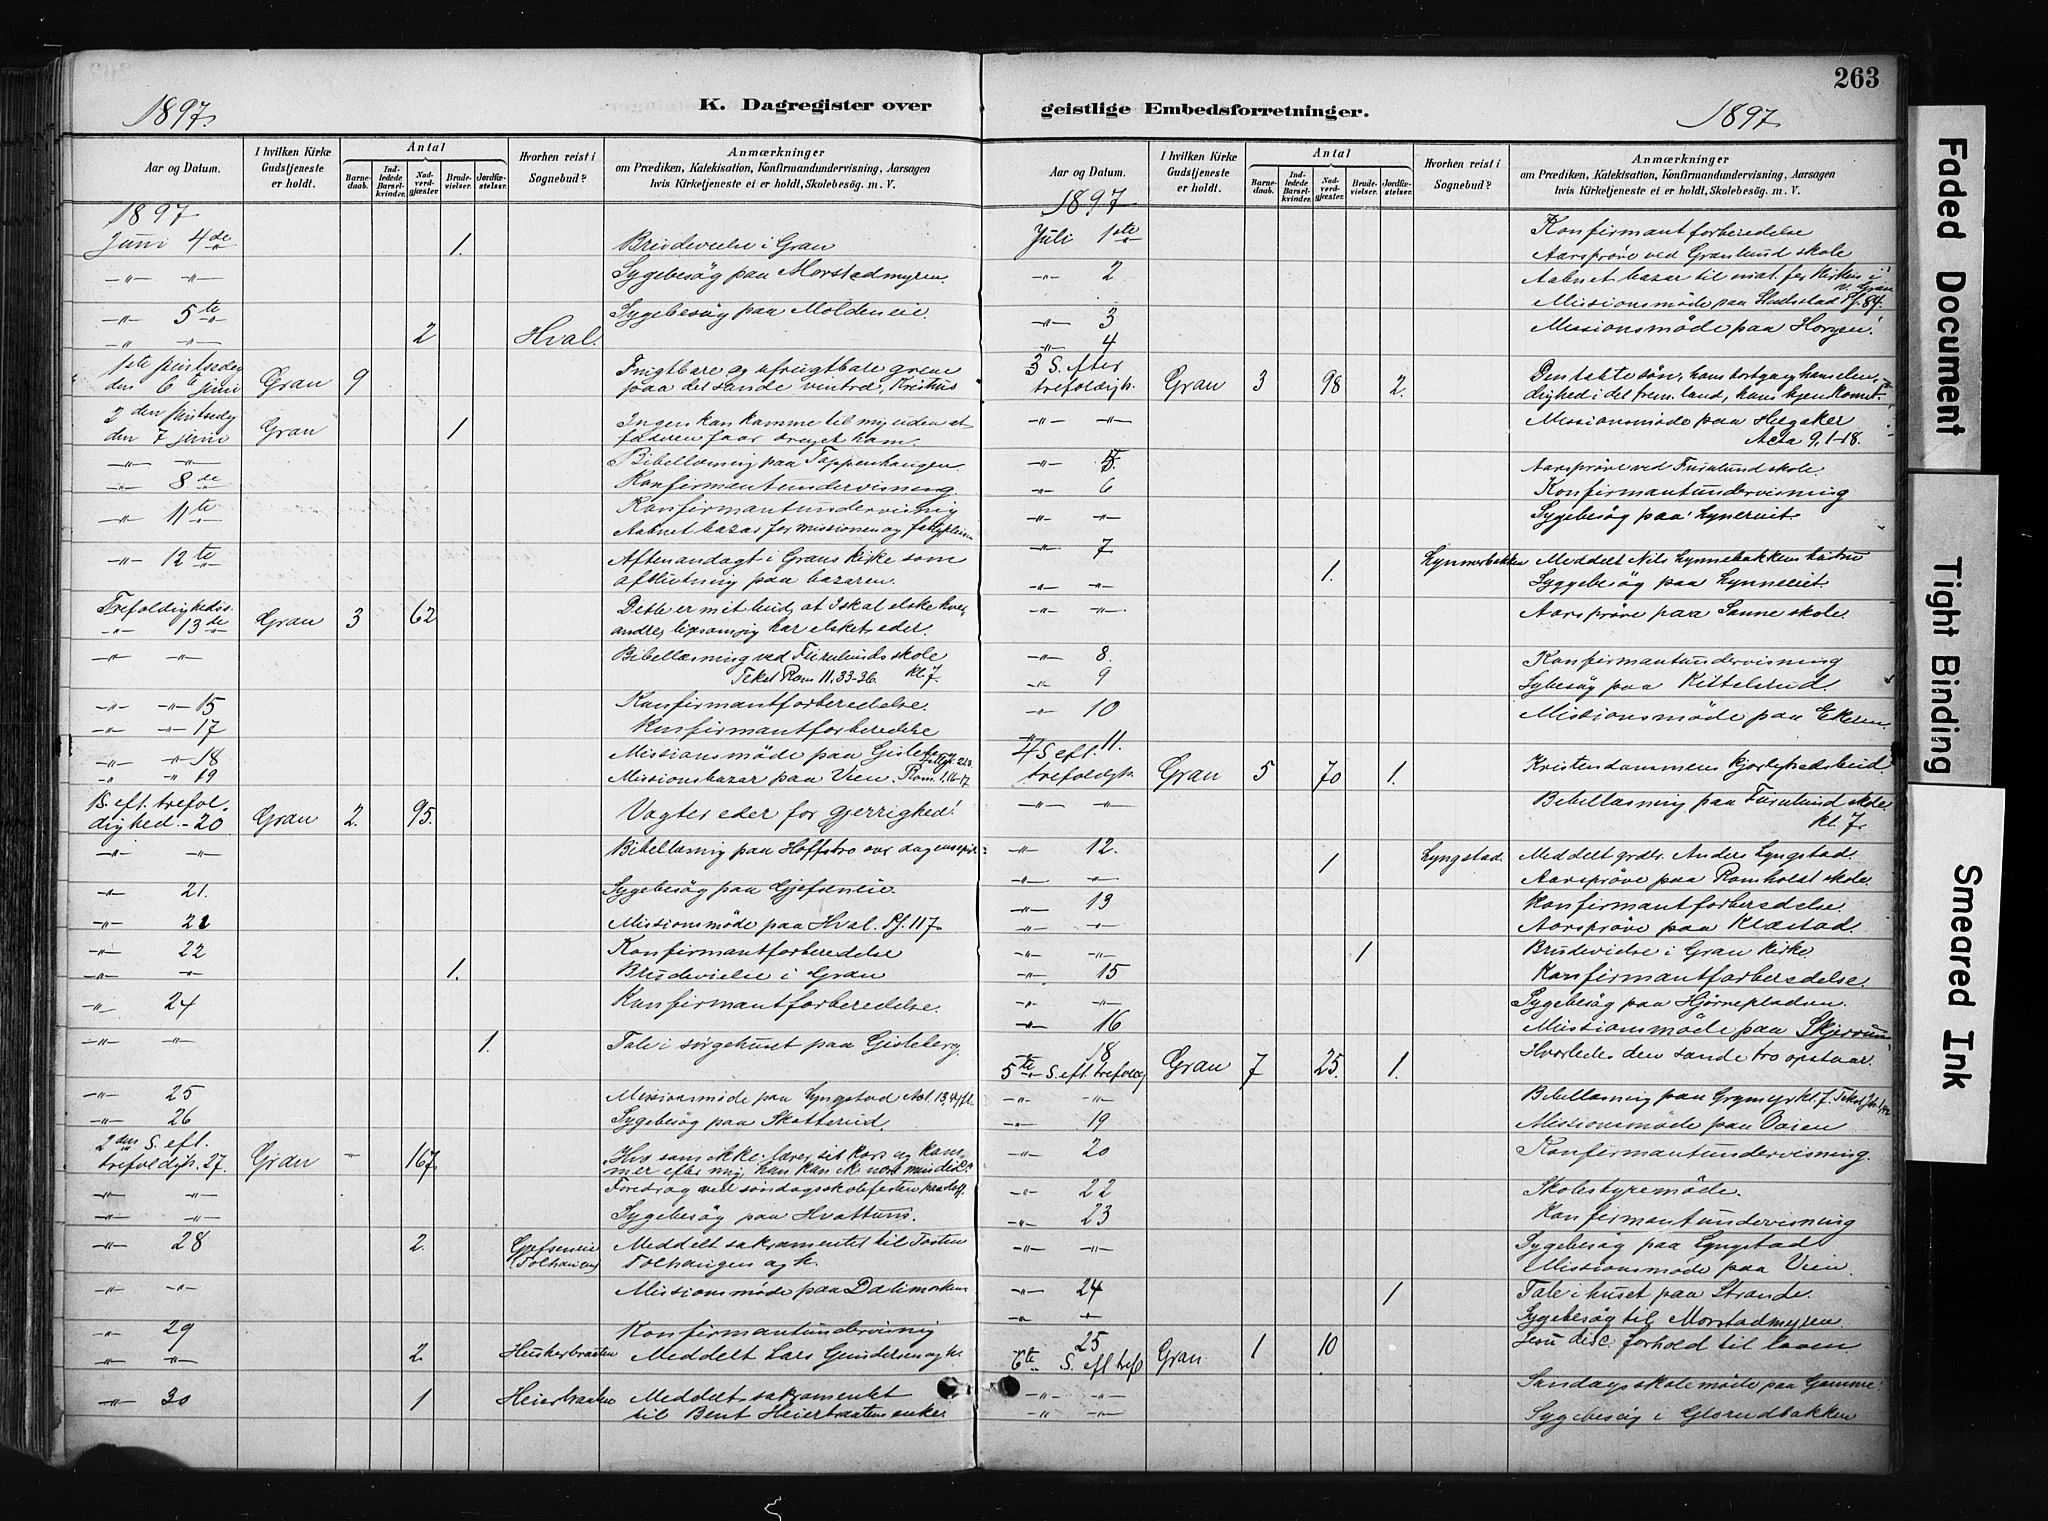 263
1897.
K. Dagregister over
geistlige Embedsforretninger.
1897.
Aar og Datum.
I hvilken Kirke Gudstjeneste er holdt.
Antal
Barnedaab.
Indledede Barselkvinder.
Nadverdgjester.
Brudevielser.
Jordfæstelser.
Hvorhen reist i Sognebud?
Anmærkninger
om Prædiken, Katekisation, Konfirmandundervisning, Aarsagen
hvis Kirketjeneste ei er holdt, Skolebesøg. m. V.
1897
Juni 4de 1. Brudevielse i Gran
-"- -"- Sygebesøg paa Morstadmyren.
-"- 5te Sygebesøg paa Moldeneie.
" " 2 Hval.
1ste pintsedag
den 6te juni Gran 9 Frugtbare og ufrugtbare grene
paa det sande ventræ, Kristus
2den pintsedg
den 7 juni Gran 1 Ingen kan komme til mig uden at
faderen faar draget ham.
-"- -"- Bibellæsning paa Toppenhaugen
-"- 8de Konfirmantundervisning
-"- 11te Konfirmantundervisnig
Aabnet bazar for missionen og
-"- 12te Aftenandagt i Grans kirke som
afslutning paa bazaren.
Trefoldighedss.
-"- 13de Gran 3 62 Dette er mit bud, at I skal elske hver-
andre, ligesom jeg har elsket eder.
-"- -"- Bibellæsning ved Furulunds skole
Tekst Rom 11.33-36. kl 7.
-"- -"- 15 Konfirmantforberedelse.
-"- -"- 17 Konfirmantforberedelse
-"- -"- 18 Missionsmøde paa Gisleberg
" " 19 Missionsbazar paa Vien. Rom. 1,16-17
1S. eft. trefol-
dighed.-20 Gran 2. 95. Vogter eder for gjerrighed!
-"- -"- Bibellæsnig paa Hoffstro over dagens
-"- 21. Sygebesøg paa Gjefseneie.
-"- 21 Missionsmøde paa Hval. Sj. 117
-"- 22 Konfirmantforberedelse
-"- -"- 1. Brudevielse i Gran
-"- 24 Konfirmantforberedelse.
-"- -"- 1. Tale i sørgehuset paa Gisleberg.
-"- 25 Missionsmøde paa Lyngstad Act. 13,
-"- 26 Sygebesøg paa Skatterud.
2den S. eft.
trefoldigh. 27. Gran - 167 "Hvo som ikke bærer sit kors og kom-
mer efter mig, han kan ik. være min disc."
-"- -"- Foredrag ved søndagsskolefesten paa
-"- -"- Sygebesøg paa Hvattums.
-"- 28 2. Gjefseneie
(Tolhaugen) Meddelt sakramentet til Tosten
Tolhaugen og k.
-"- -"- Missionsmøde paa Dalimarken
-"- 29 Konfirmantundervisnig
-"- -"- 2. Heskerbraaten Meddelt Lars Gundersen og k.
-"- 30 1 Heierbraaten Meddelt sakramentet
til Bent Heierbraatens enke.
Aar og Datum.
I hvilken Kirke Gudstjeneste er holdt.
Antal
Barnedaab.
Indledede Barselkvinder.
Nadverdgjester.
Brudevielser.
Jordfæstelser.
Hvorhen reist i Sognebud?
Anmærkninger
om Prædiken, Katekisation, Konfirmandundervisning, Aarsagen
hvis Kirketjeneste ei er holdt, Skolebesøg. m. V.
1897
Juli 1ste Konfirmantforberedelse
Aarsprøve ved Granlund skole
-"- 2 Aabnet bazar til
Missionsmøde paa
-"- 3 Missionsmøde paa Horgen.
-"- 4
3 S. efter
trefoldigh. Gran 3 98 2. Den tabte søn, hans bortgang hans elen-
dighed i det frem. land, hans hjemkomst.
-"- -"- Missionsmøde paa Hegaker
Acta 9, 1-18.
-"- 5 Aarsprøve ved Furulund skole.
-"- 6 Konfirmantundervisning
-"- -"- Sygebesøg paa
-"- 7 1. Lynnebakken Meddelt Nils Lynnebakkens hustru
-"- -"- Syggebesøg paa
-"- -"- Aarsprøve paa Sanne skole.
-"- 8. Konfirmantundervisning
-"- 9 Sybesøg paa Kittelsrud.
-"- 10 Missionsmøde paa Ekeren
-"- 11.
4 S eft.
trefoldgh. Gran 5 70 1. Kristendommens kjærlighedsbud.
-"- -"- Bibellæsning paa Furulund skole
kl. 7.
-"- 12. 1 Lyngstad. Meddelt grdbr. Anders Lyngstad.
-"- -"- Aarsprøve paa Ramholdt skole.
-"- 13 Konfirmantforberedelse.
-"- -"- Aarsprøve paa Klæstad.
-"- -"- 1 Brudevielse i Gran kirke
-"- 15 Konfirmantforberedelse.
-"- -"- Sygebesøg paa Hjørnepladsen.
-"- 16 Missionsmøde paa Skjervum
18
5te S. eft. trefold Gran 7 25. 1. Hvorledes den sande tro opstaar.
-"- -"- Bibellæsning paa Grymyr kl. 7. Tekst
-"- 19 Missionsmøde paa Vøien
-"- 20 Konfirmantundervisning.
-"- 22 Skolestyremøde.
-"- 23 Konfirmantundervisning
-"- -"- Sygebesøg paa Lyngstad
Missionsmøde paa Vien.
-"- 24 1 Tale i huset paa Strande.
-"- -"- Sygebesøg til Morstadmyren
25
6te S. eft tref Gran 1 10 Jesu disc. forhold til loven
-"- -"- Søndagsskolemøde paa Gamme.
-"- -"- Sygebesøg i Glorudbakken
Faded Document
Tight Binding
Smeared Ink